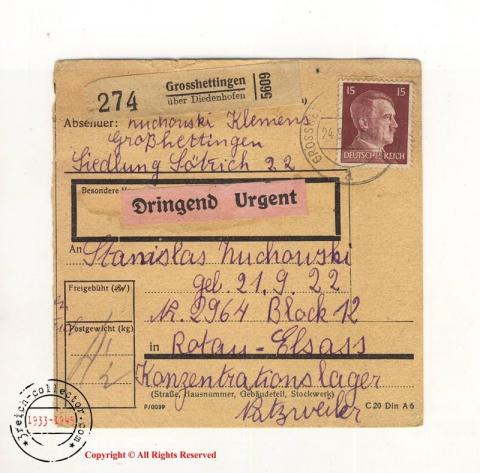 Grosshettingen
274
über Diedenhofen
5609
Absender: Zuchowski Klemens
Großhettingen
Siedlung Sötrich 22
15 15
DEUTSCHES REICH
24.8
Besondere
Dringend Urgent
An Stanislas Zuchowski
geb. 21.9.22
Freigebühr (RM)
Nr. 2964 Block 12
Postgewicht (kg)
in Rotau-Elsass
Konzentrationslager
(Straße, Hausnummer, Gebäudeteil, Stockwerk)
P/0039
Natzweiler
C 20 Din A 6
3reich-collector.com
1933-1945
Copyright © All Rights Reserved